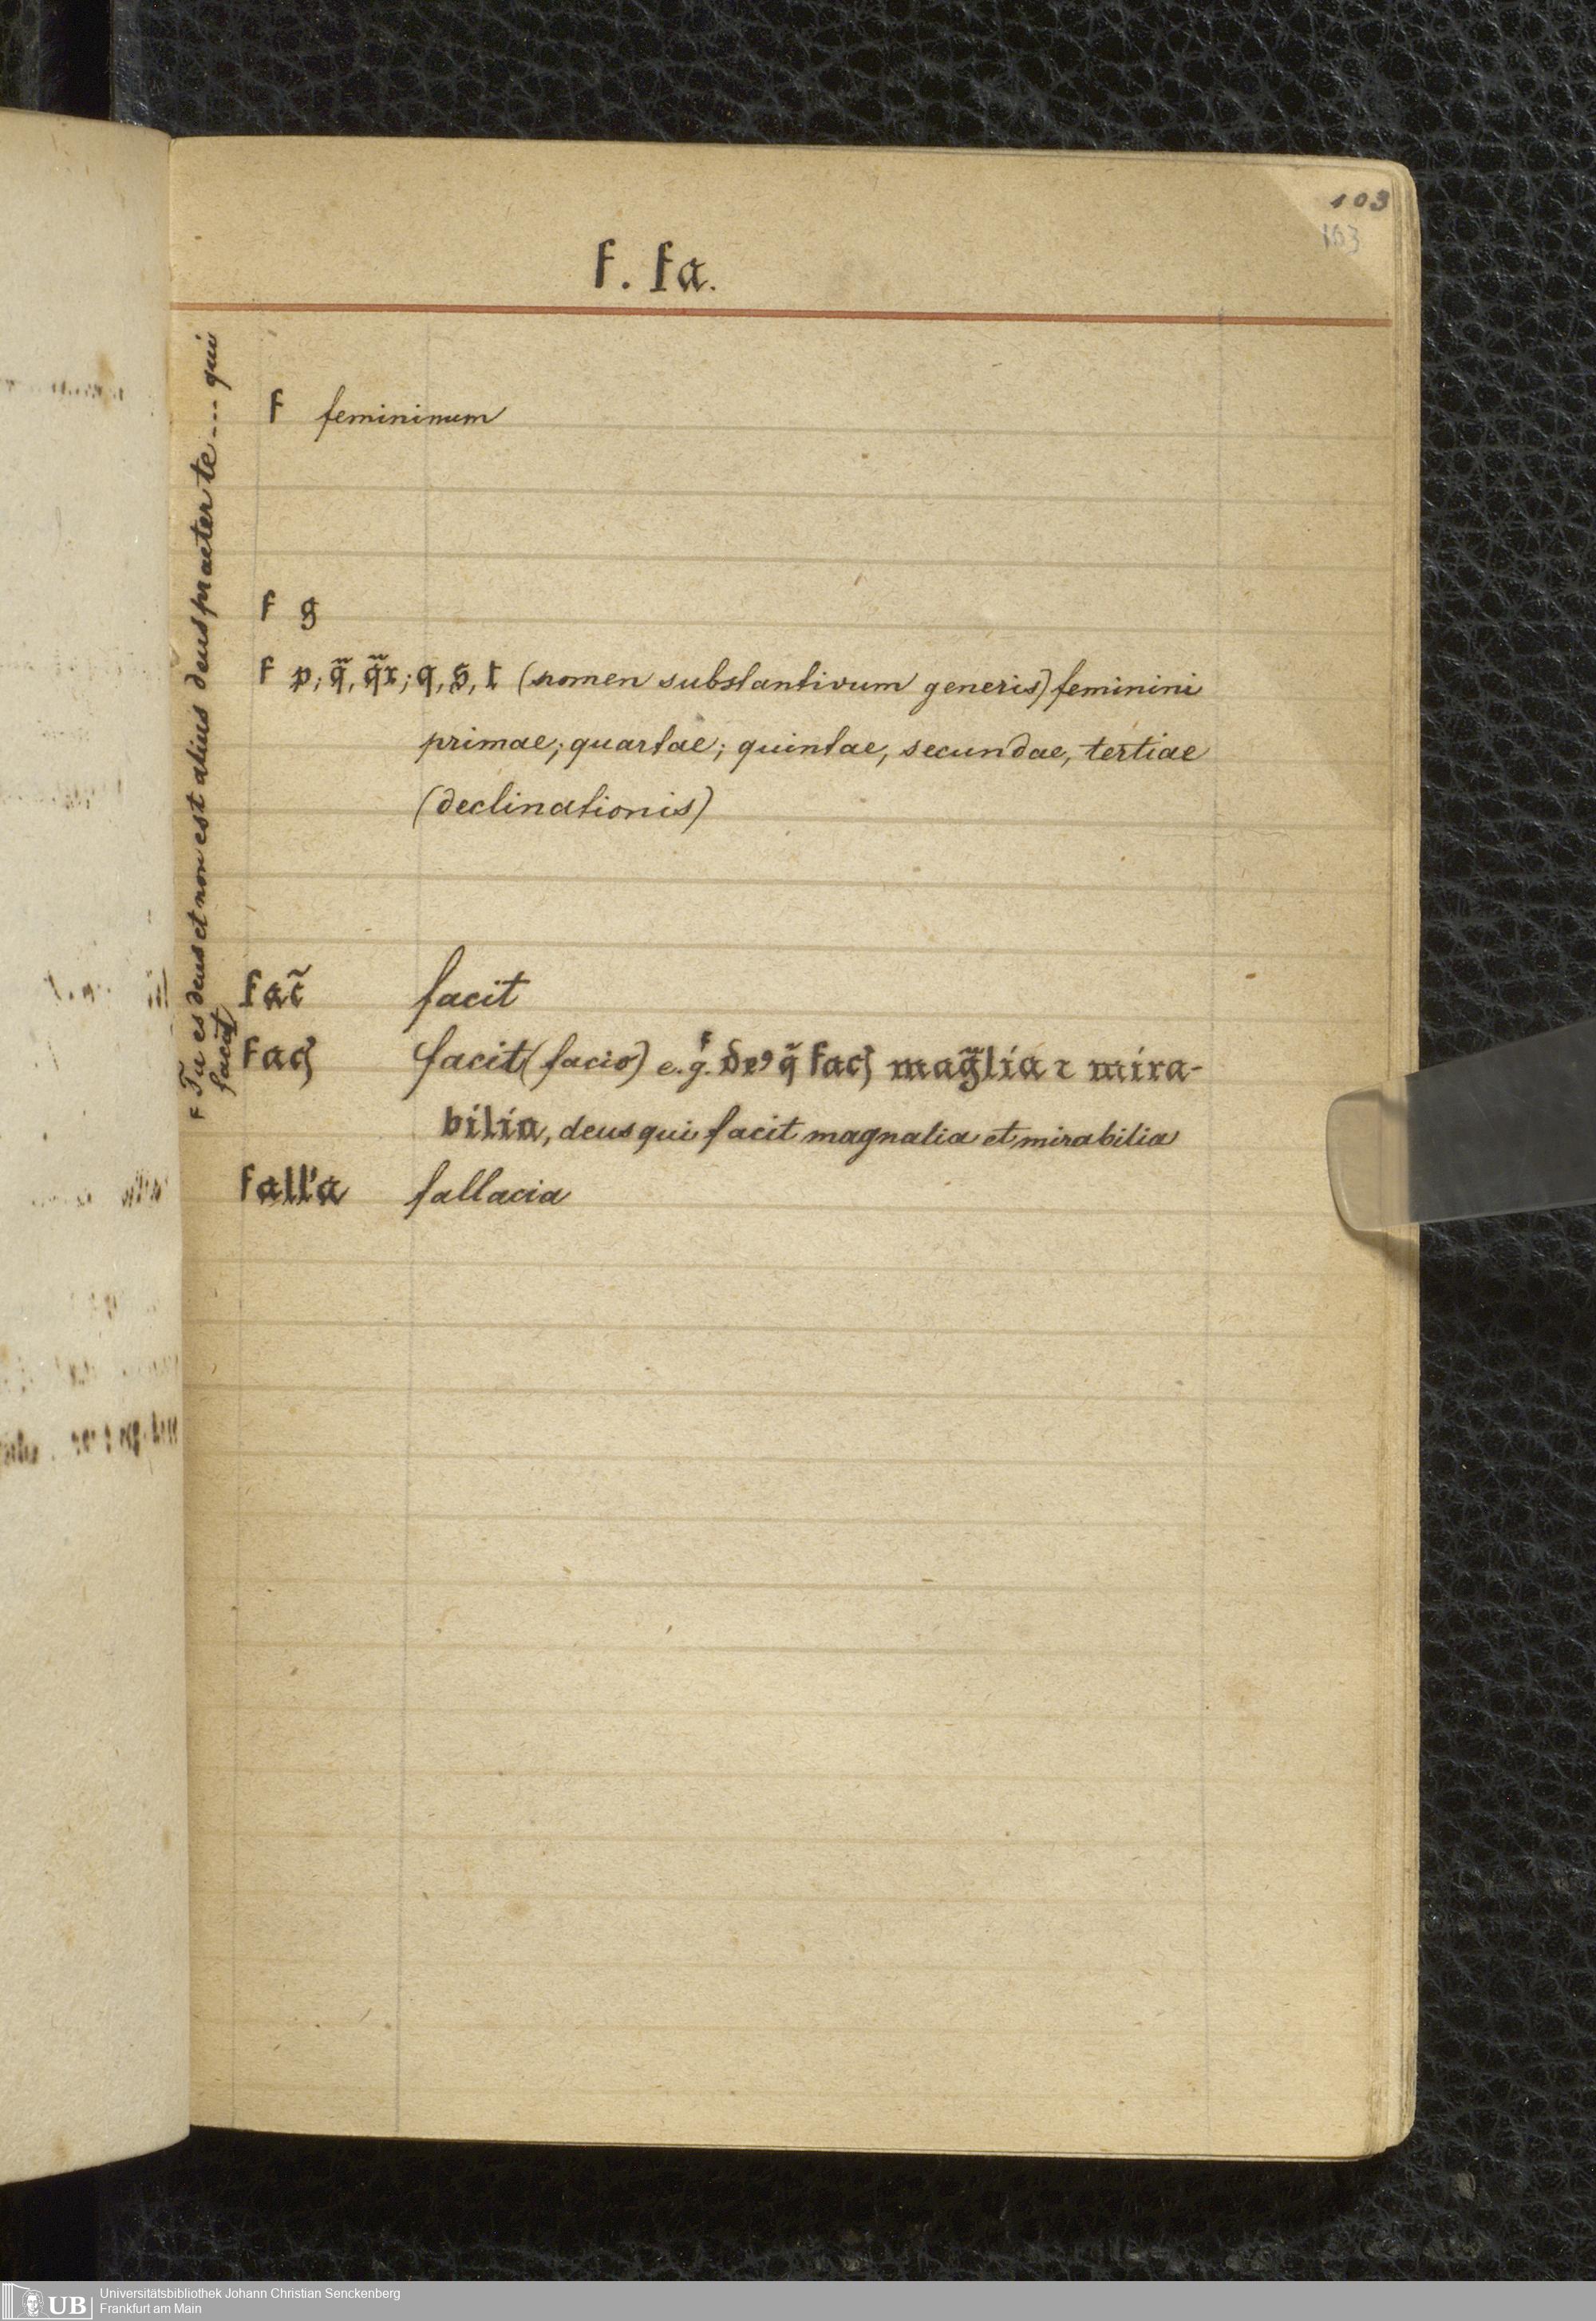 103
103
f. fa.
f femininum
f g
f p; q̃, q̃r; q, s, t (nomen substantivum generis) feminini
primae; quartae; quintae, secundae, tertiae
(declinationis)
fac̃ facit
facꝭ facit (facio) e. g. deꝰ q̃ facꝭ mag̃lia ⁊ mira-
bilia, deus qui facit magnalia et mirabilia
fall'a fallacia
f Tu es deus et non est alius deus praeter te --- qui
facit
UB Universitätsbibliothek Johann Christian Senckenberg
Frankfurt am Main